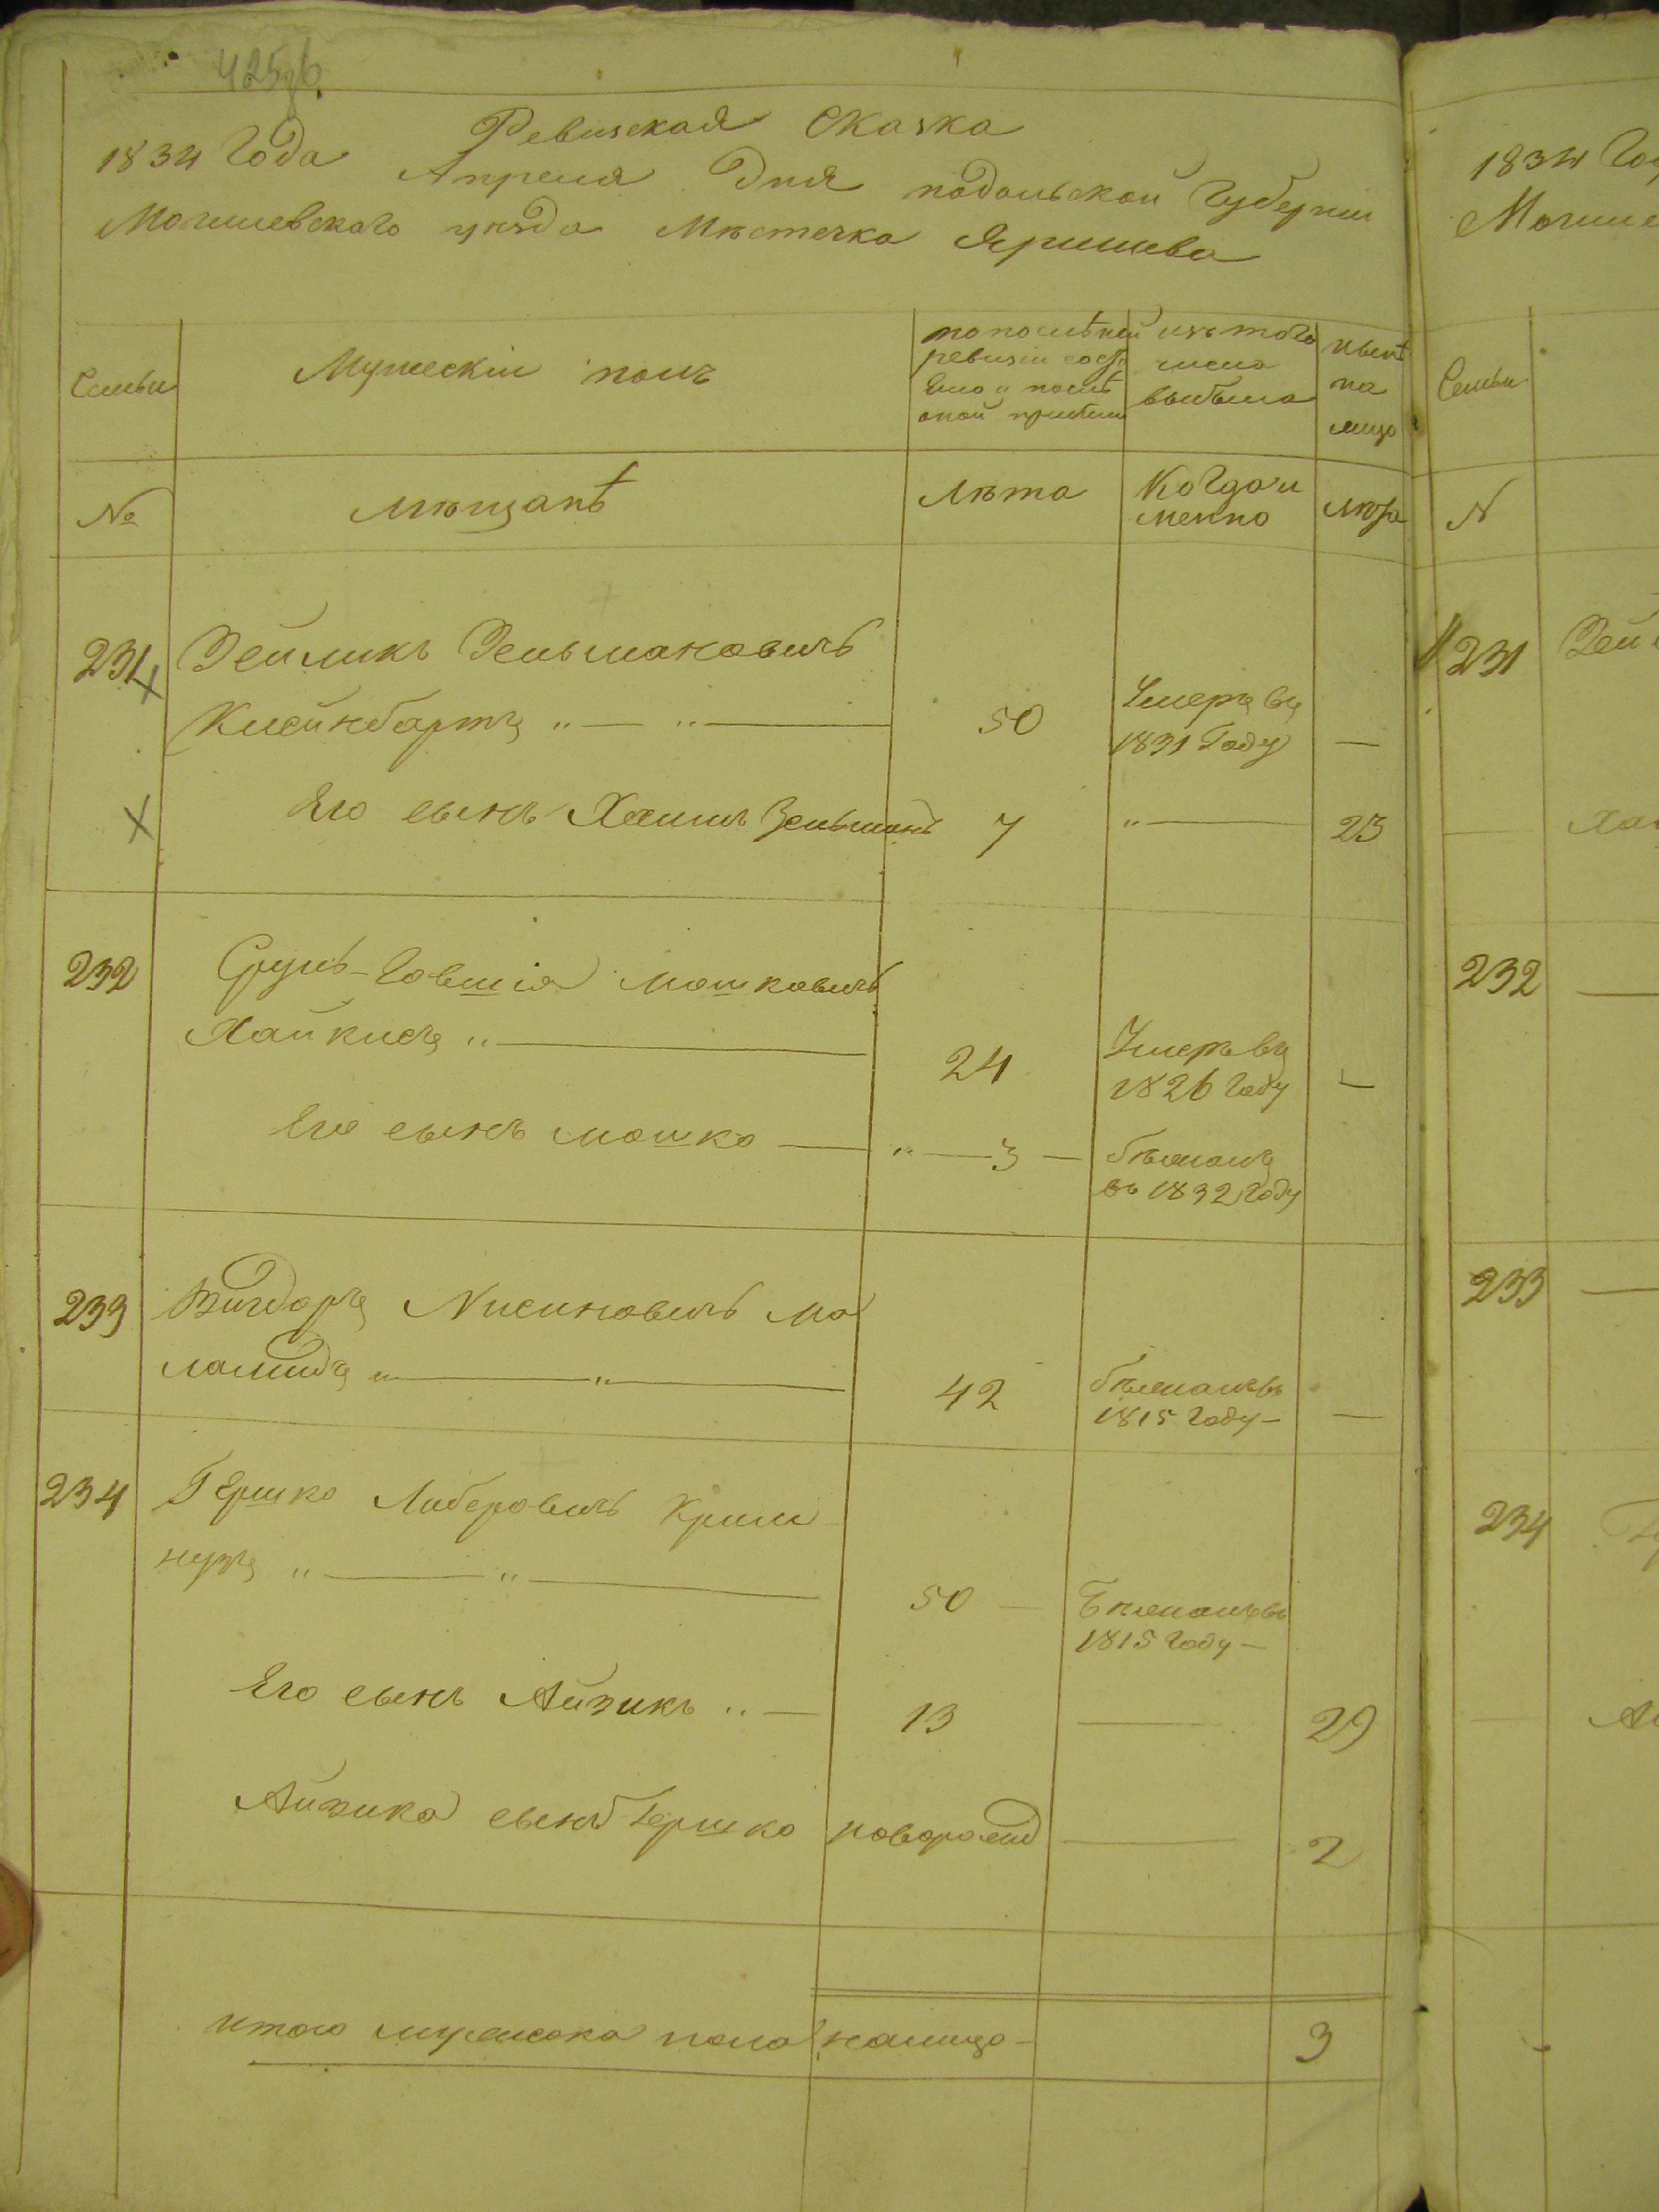 425об.
Ревизская Сказка
1834 Года Апреля Дня подольской Губернии
Могилевского уезда Мѣстечка Яришева
Семьи
Мужескiй полъ
по послѣдней ревизiи состояло и послѣ оной прибыло
изъ того числа выбыло
нынѣ на лицо
№
мѣщанѣ
Лѣта
Когда именно
лѣта
231
Зейликъ Зельмановичъ
Клейнбартъ
50
Умеръ въ
1831 Году
—
Его сынъ Хаимъ Зельманъ
7
23
232
Сруль-Говшiя Мошковичъ
Хайкисъ
24
Умеръ въ
1826 Году
—
Его сынъ Мошко — 3 —
бѣжалъ
въ 1832 Году
233
Вигдоръ Нисиновичъ Ма
ламидъ
42
бѣжалъ въ
1815 Году —
—
234
Гершко Либеровичъ Крим
нузъ
50 —
Бѣжалъ въ
1815 Году —
Его сынъ Айзикъ
13
29
Айзика сынъ Гершко
новорожд
2
итого мужеска пола налицо — 3
1834 Го
Могиле
Семьи
N
231 Зей
Хаи
232
233
234
Ай